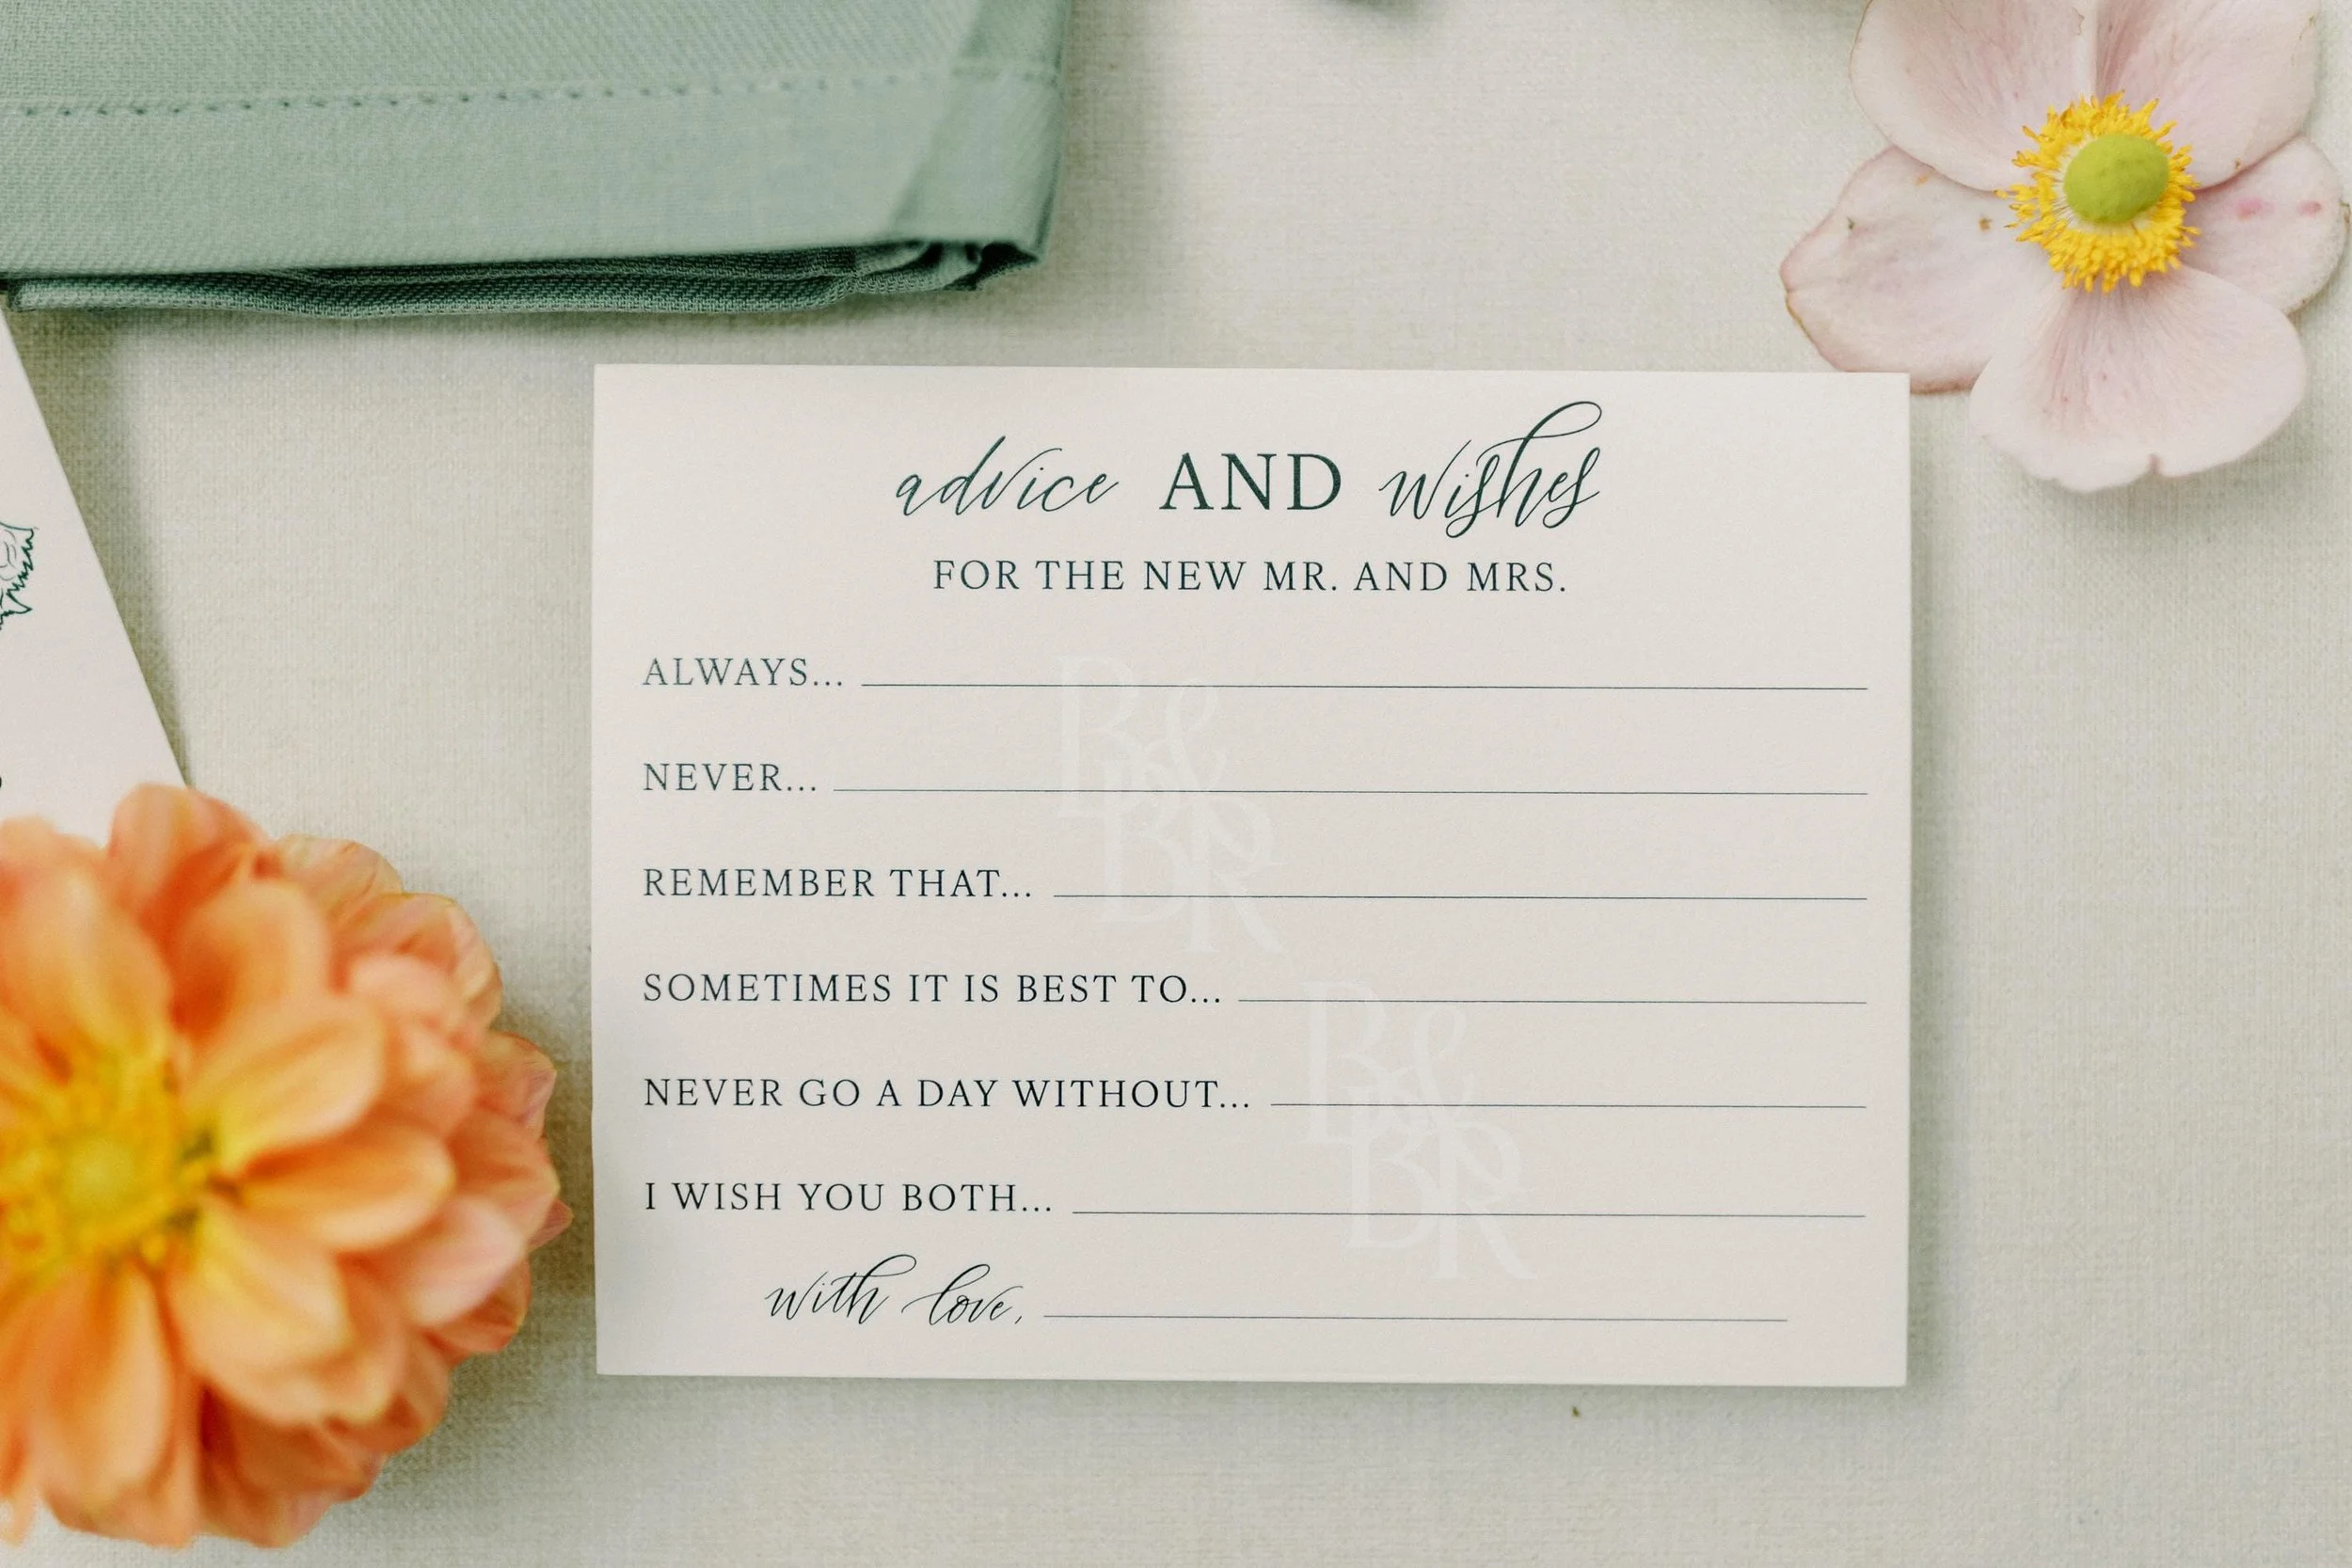 advice AND wishes
FOR THE NEW MR. AND MRS.
ALWAYS...
NEVER...
REMEMBER THAT...
SOMETIMES IT IS BEST TO...
NEVER GO A DAY WITHOUT...
I WISH YOU BOTH...
with love,